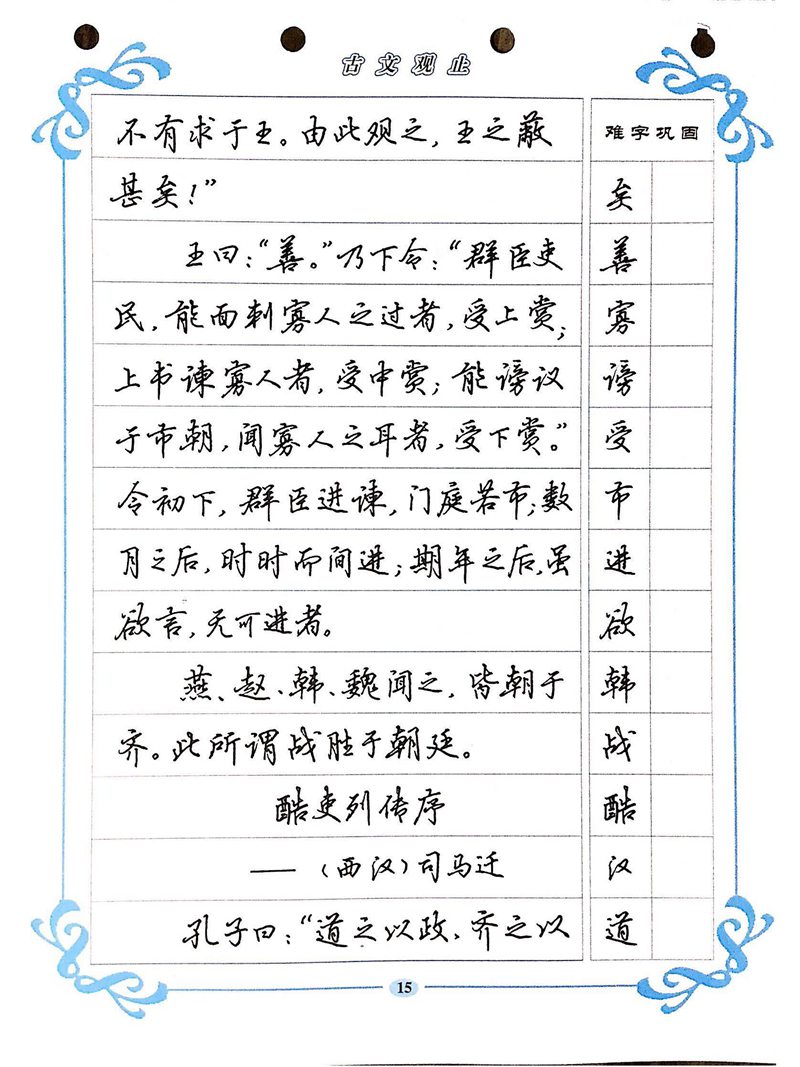 古文观止
不有求于王。由此观之,王之蔽
甚矣!”
王曰:“善。”乃下令:“群臣吏
民,能面刺寡人之过者,受上赏;
上书谏寡人者,受中赏;能谤议
于市朝,闻寡人之耳者,受下赏。”
令初下,群臣进谏,门庭若市;数
月之后,时时而间进;期年之后,虽
欲言,无可进者。
燕、赵、韩、魏闻之,皆朝于
齐。此所谓战胜于朝廷。
酷吏列传序
——(西汉)司马迁
孔子曰:“道之以政,齐之以
难字巩固
矣
善
寡
谤
受
市
进
欲
韩
战
酷
汉
道
15